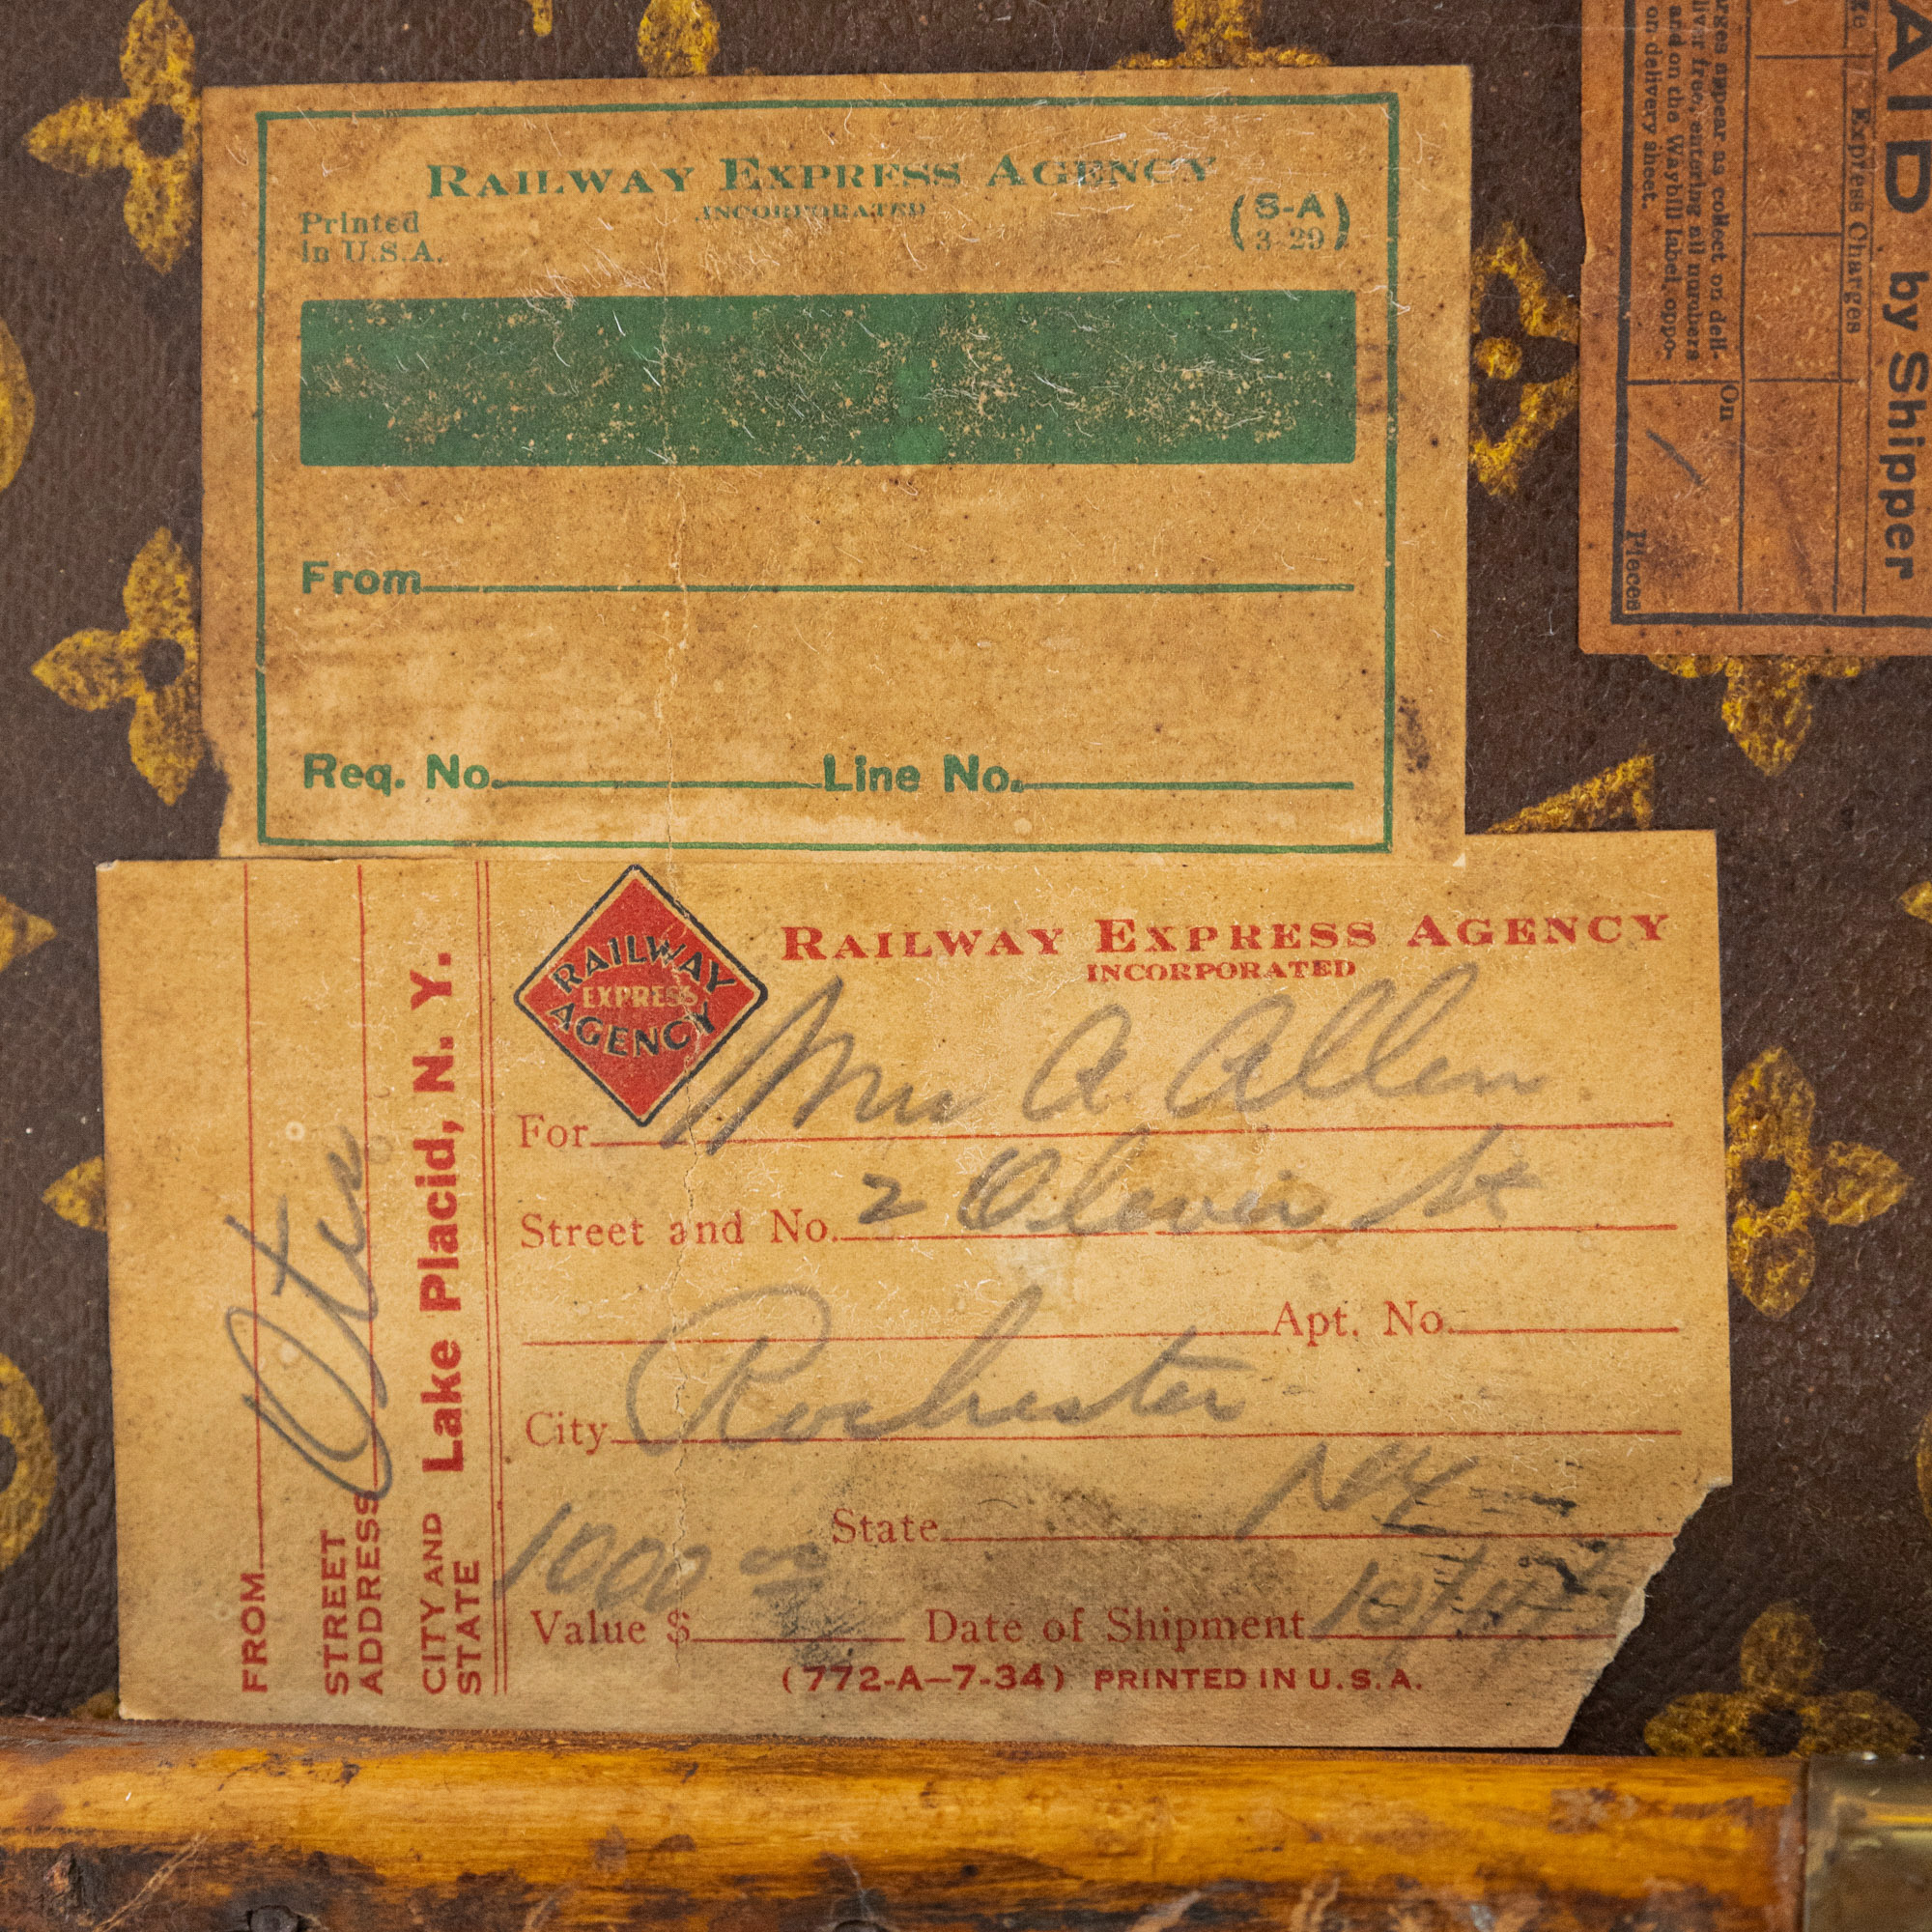 RAILWAY EXPRESS AGENCY
INCORPORATED
Printed
in U.S.A.
(S-A
3-29)
From
Req. No. Line No.
AID by Shipper
Express Charges
arges appear as collect on deli-
iver free, entering all numbers
and on the Waybill label, oppo-
on delivery sheet.
On
Pieces
RAILWAY
EXPRESS
AGENCY
RAILWAY EXPRESS AGENCY
INCORPORATED
For Mrs A. Allen
Street and No. 2 St
Apt. No.
City Rochester
State NY
Value $ 1000 00 Date of Shipment
(772-A—7-34) PRINTED IN U.S.A.
FROM Otis
STREET
ADDRESS
CITY AND
STATE Lake Placid, N. Y.